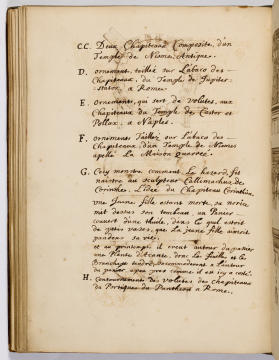 CC. Deux Chapiteaux Composite, d'un
Temple de Nismes Antique.
D. ornement, taillez sur l'abaco des
Chapiteaux, du Temple de Jupiter
stator, a Rome.
E. Ornements, qui sert de volutes, aux
Chapiteaux du Temple de Castor et
Pollux, a Naples.
F. orniments Taillez sur l'abaco des
Chapiteaux, d'un Temple de Nismes
apellé La Maison quarrée.
G. Cecy monstre comment Le hazard, fit
naistre au sculpteur Callimachus de
Corinthe, L'idée du Chapiteau Corinthien
une Jeune fille estant morte, sa norice
mit dessus son tombeau un Panier
couvert d'une thuile, dans le quel estoit
de petis vases, que La jeune fille aimoit
pendant sa vie,
et au printemps il creut autour du panier
une Plante d'Acante, dont Le feuilles et les
Branchage tendre, s'accommoderent a l'autour
du panier, apeu pres comme il est icy a costé.
H. Contournement des volutes des chapiteaux
du Portique du Pantheon a Rome.